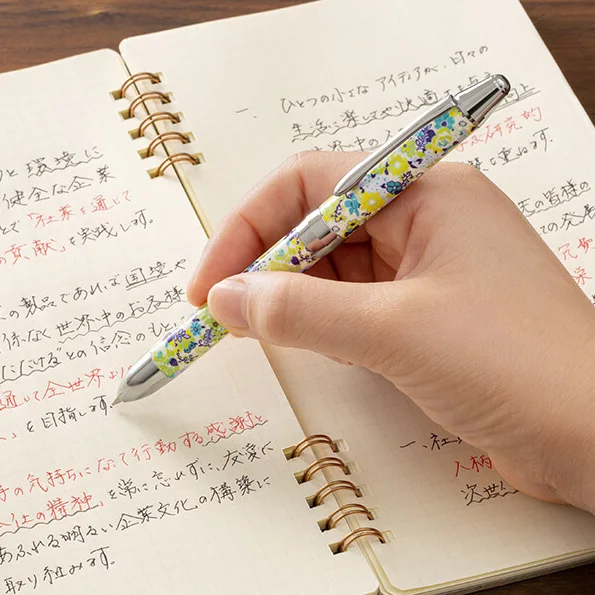 環境に
健全な企業
とで「社業を通じて
の貢献」を実践します。
の製品であれば国境や
係なく世界中のお客様
ただける"との信念のもと
通じて全世界
を目指します。
手の気持ちになって行動する感謝と
仕の精神」を常に忘れずに、友愛に
あふれる明るい企業文化の構築に
取り組みます。
一、ひとつの小さなアイデアが、日々の
生活に楽しさや快適
世界中の人
研究的
を重ねます。
の皆様の
ての発展
一、社
人柄
次世